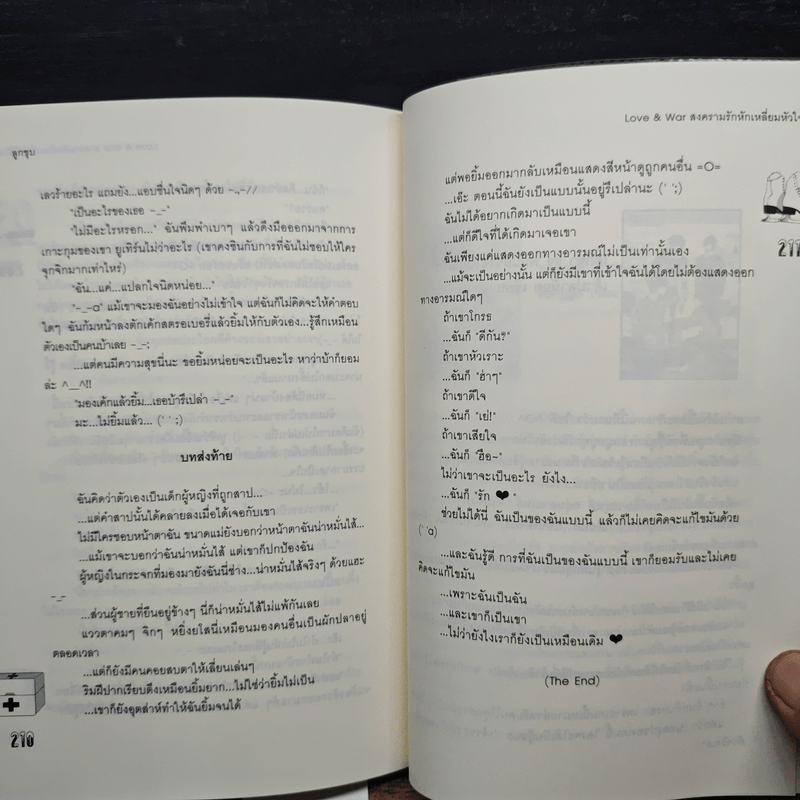 ลูกชุบ
เลวร้ายอะไร แถมยัง...แอบชื่นใจนิดๆ ด้วย -.,-//
"เป็นอะไรของเธอ -_-"
"ไม่มีอะไรหรอก..." ฉันพึมพำเบาๆ แล้วดึงมือออกมาจากการ
เกาะกุมของเขา ยูเทิร์นไม่ว่าอะไร (เขาคงชินกับการที่ฉันไม่ชอบให้ใคร
จุกจิกมากเท่าไหร่)
"ฉัน...แค่...แปลกใจนิดหน่อย..."
"-_-a" แม้เขาจะมองฉันอย่างไม่เข้าใจ แต่ฉันก็ไม่คิดจะให้คำตอบ
ใดๆ ฉันก้มหน้าลงตักเค้กสตรอเบอรี่แล้วยิ้มให้กับตัวเอง...รู้สึกเหมือน
ตัวเองเป็นคนบ้าเลย -_-;
...แต่คนมีความสุขนี่นะ ขอยิ้มหน่อยจะเป็นอะไร หาว่าบ้าก็ยอม
ล่ะ ^__^!!
"มองเค้กแล้วยิ้ม...เธอบ้ารึเปล่า -_-"
มะ...ไม่ยิ้มแล้ว... (' ' ;)
บทส่งท้าย
ฉันคิดว่าตัวเองเป็นเด็กผู้หญิงที่ถูกสาป...
...แต่คำสาปนั้นได้คลายลงเมื่อได้เจอกับเขา
ไม่มีใครชอบหน้าตาฉัน ขนาดแม่ยังบอกว่าหน้าตาฉันน่าหมั่นไส้...
...แม้เขาจะบอกว่าฉันน่าหมั่นไส้ แต่เขาก็ปกป้องฉัน
ผู้หญิงในกระจกที่มองมายังฉันนี่ช่าง...น่าหมั่นไส้จริงๆ ด้วยแฮะ
-_-
...ส่วนผู้ชายที่ยืนอยู่ข้างๆ นี่ก็น่าหมั่นไส้ไม่แพ้กันเลย
แววตาคมๆ จิกๆ หยิ่งยโสนี่เหมือนมองคนอื่นเป็นผักปลาอยู่
ตลอดเวลา
...แต่ก็ยังมีคนคอยสบตาให้เสี่ยนเล่นๆ
ริมฝีปากเรียบตึงเหมือนยิ้มยาก...ไม่ใช่ว่ายิ้มไม่เป็น
...เขาก็ยังอุตส่าห์ทำให้ฉันยิ้มจนได้
210
Love & War สงครามรักหักเหลี่ยมหัวใจ
แต่พอยิ้มออกมากลับเหมือนแสดงสีหน้าดูถูกคนอื่น =O=
...เอ๊ะ ตอนนี้ฉันยังเป็นแบบนั้นอยู่รึเปล่านะ (' ';)
ฉันไม่ได้อยากเกิดมาเป็นแบบนี้
...แต่ก็ดีใจที่ได้เกิดมาเจอเขา
ฉันเพียงแค่แสดงออกทางอารมณ์ไม่เป็นเท่านั้นเอง
...แม้จะเป็นอย่างนั้น แต่ก็ยังมีเขาที่เข้าใจฉันได้โดยไม่ต้องแสดงออก
ทางอารมณ์ใดๆ
ถ้าเขาโกรธ
...ฉันก็ "ดีกัน?"
ถ้าเขาหัวเราะ
...ฉันก็ "ฮ่าๆ"
ถ้าเขาดีใจ
...ฉันก็ "เย่!"
ถ้าเขาเสียใจ
...ฉันก็ "ฮือ~"
ไม่ว่าเขาจะเป็นอะไร ยังไง...
...ฉันก็ "รัก ❤ "
ช่วยไม่ได้นี่ ฉันเป็นของฉันแบบนี้ แล้วก็ไม่เคยคิดจะแก้ไขมันด้วย
(' 'a)
...และฉันรู้ดี การที่ฉันเป็นของฉันแบบนี้ เขาก็ยอมรับและไม่เคย
คิดจะแก้ไขมัน
...เพราะฉันเป็นฉัน
...และเขาก็เป็นเขา
...ไม่ว่ายังไงเราก็ยังเป็นเหมือนเดิม ❤
(The End)
211